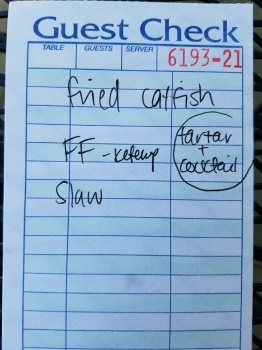 Guest Check
TABLE GUESTS SERVER
6193-21
fried catfish
tartar
FF - ketchup +
cocktail
Slaw